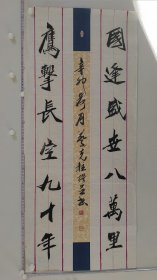 國逢盛世八萬里
鷹擊長空九十年
辛卯荷月